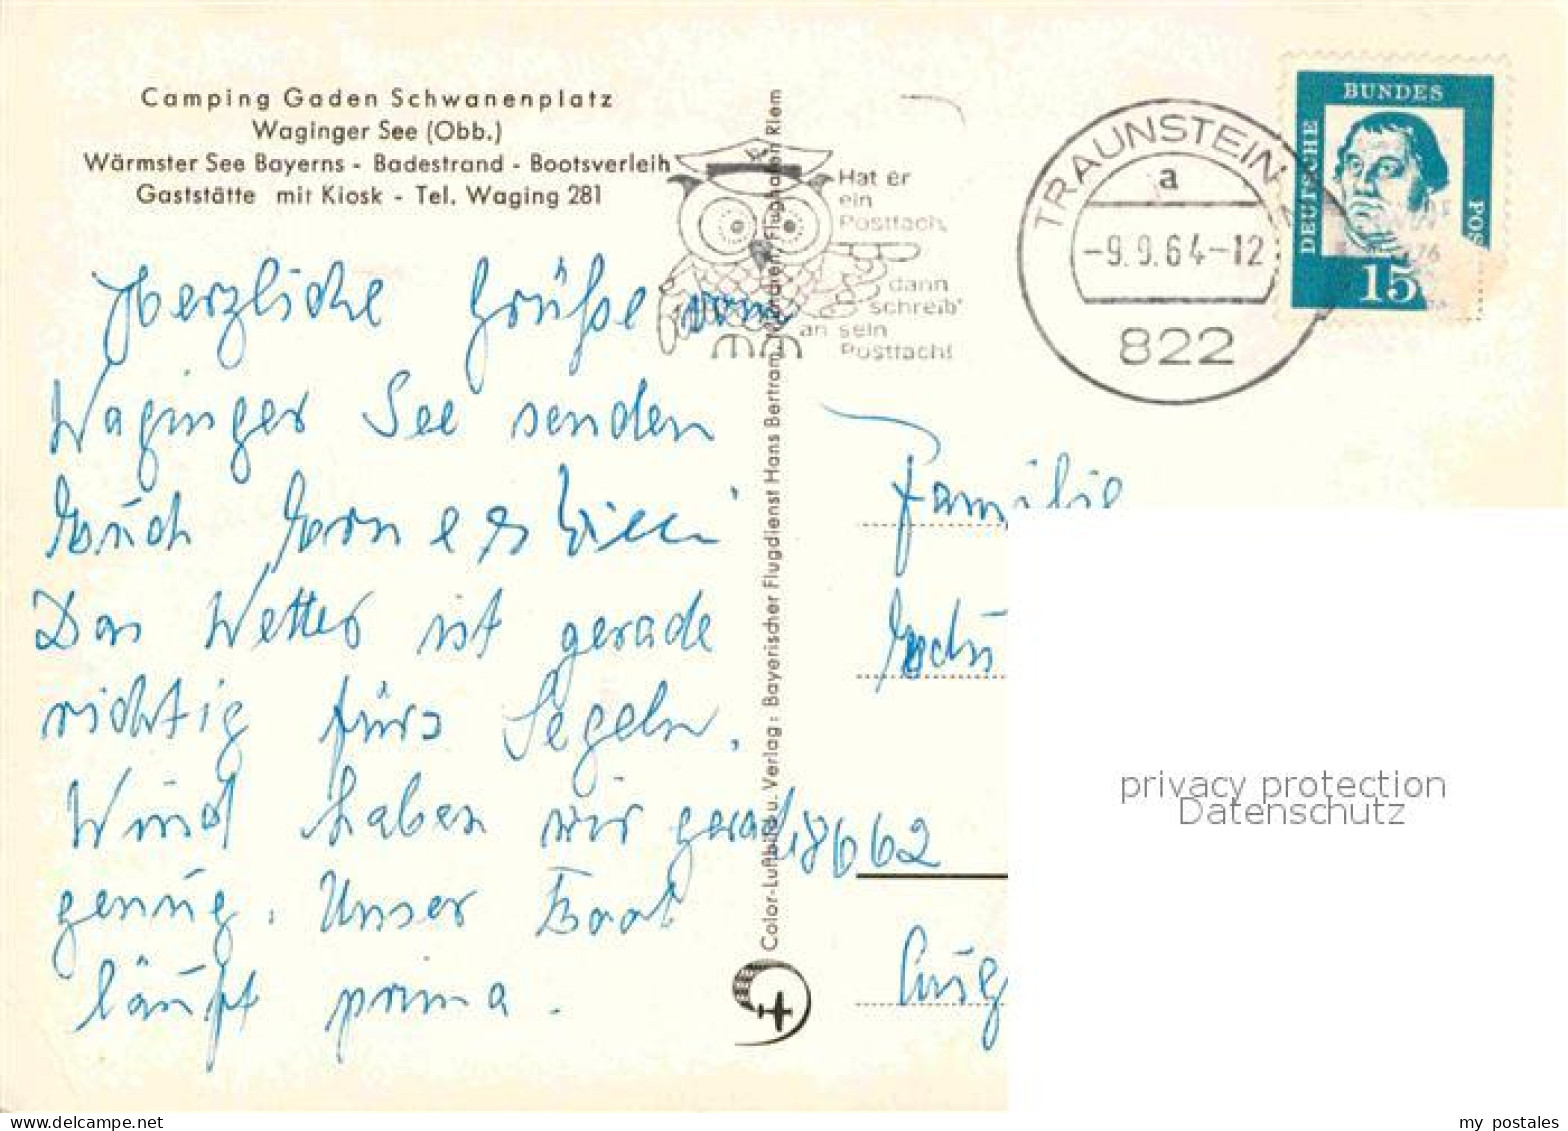 Camping Gaden Schwanenplatz
Waginger See (Obb.)
Wärmster See Bayerns - Badestrand - Bootsverleih
Gaststätte mit Kiosk - Tel. Waging 281
Hat er
ein
Postfach,
dann
schreib'
an sein
Postfach!
TRAUNSTEIN
a
-9.9.64-12
822
DEUTSCHE
BUNDES
POS
15
Herzliche Grüße vom
Waginger See senden
Euch
Das Wetter ist gerade
richtig fürs Segeln.
Wind haben wir gerad
genug. Unser Boot
läuft prima.
Color-Luftbild u. Verlag: Bayerischer Flugdienst Hans Bertram, München, Flughafen Riem
Familie
18662
privacy protection
Datenschutz
my postales